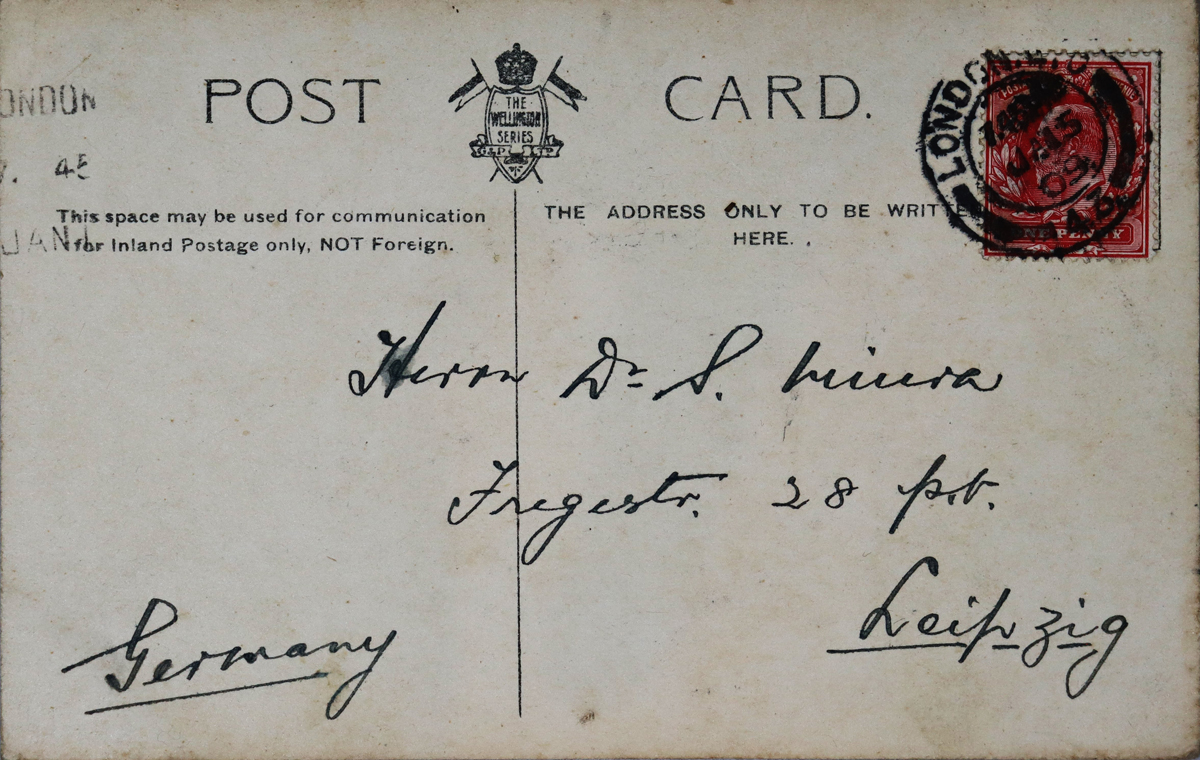 POST CARD.
THE
WELLINGTON
SERIES
G&D LTD
LONDON
JA 15
09
ONDON
45
JAN 1
This space may be used for communication
for Inland Postage only, NOT Foreign.
THE ADDRESS ONLY TO BE WRITTE
HERE.
Herrn Dr S. Miura
Fregestr. 28 pt.
Leipzig
Germany